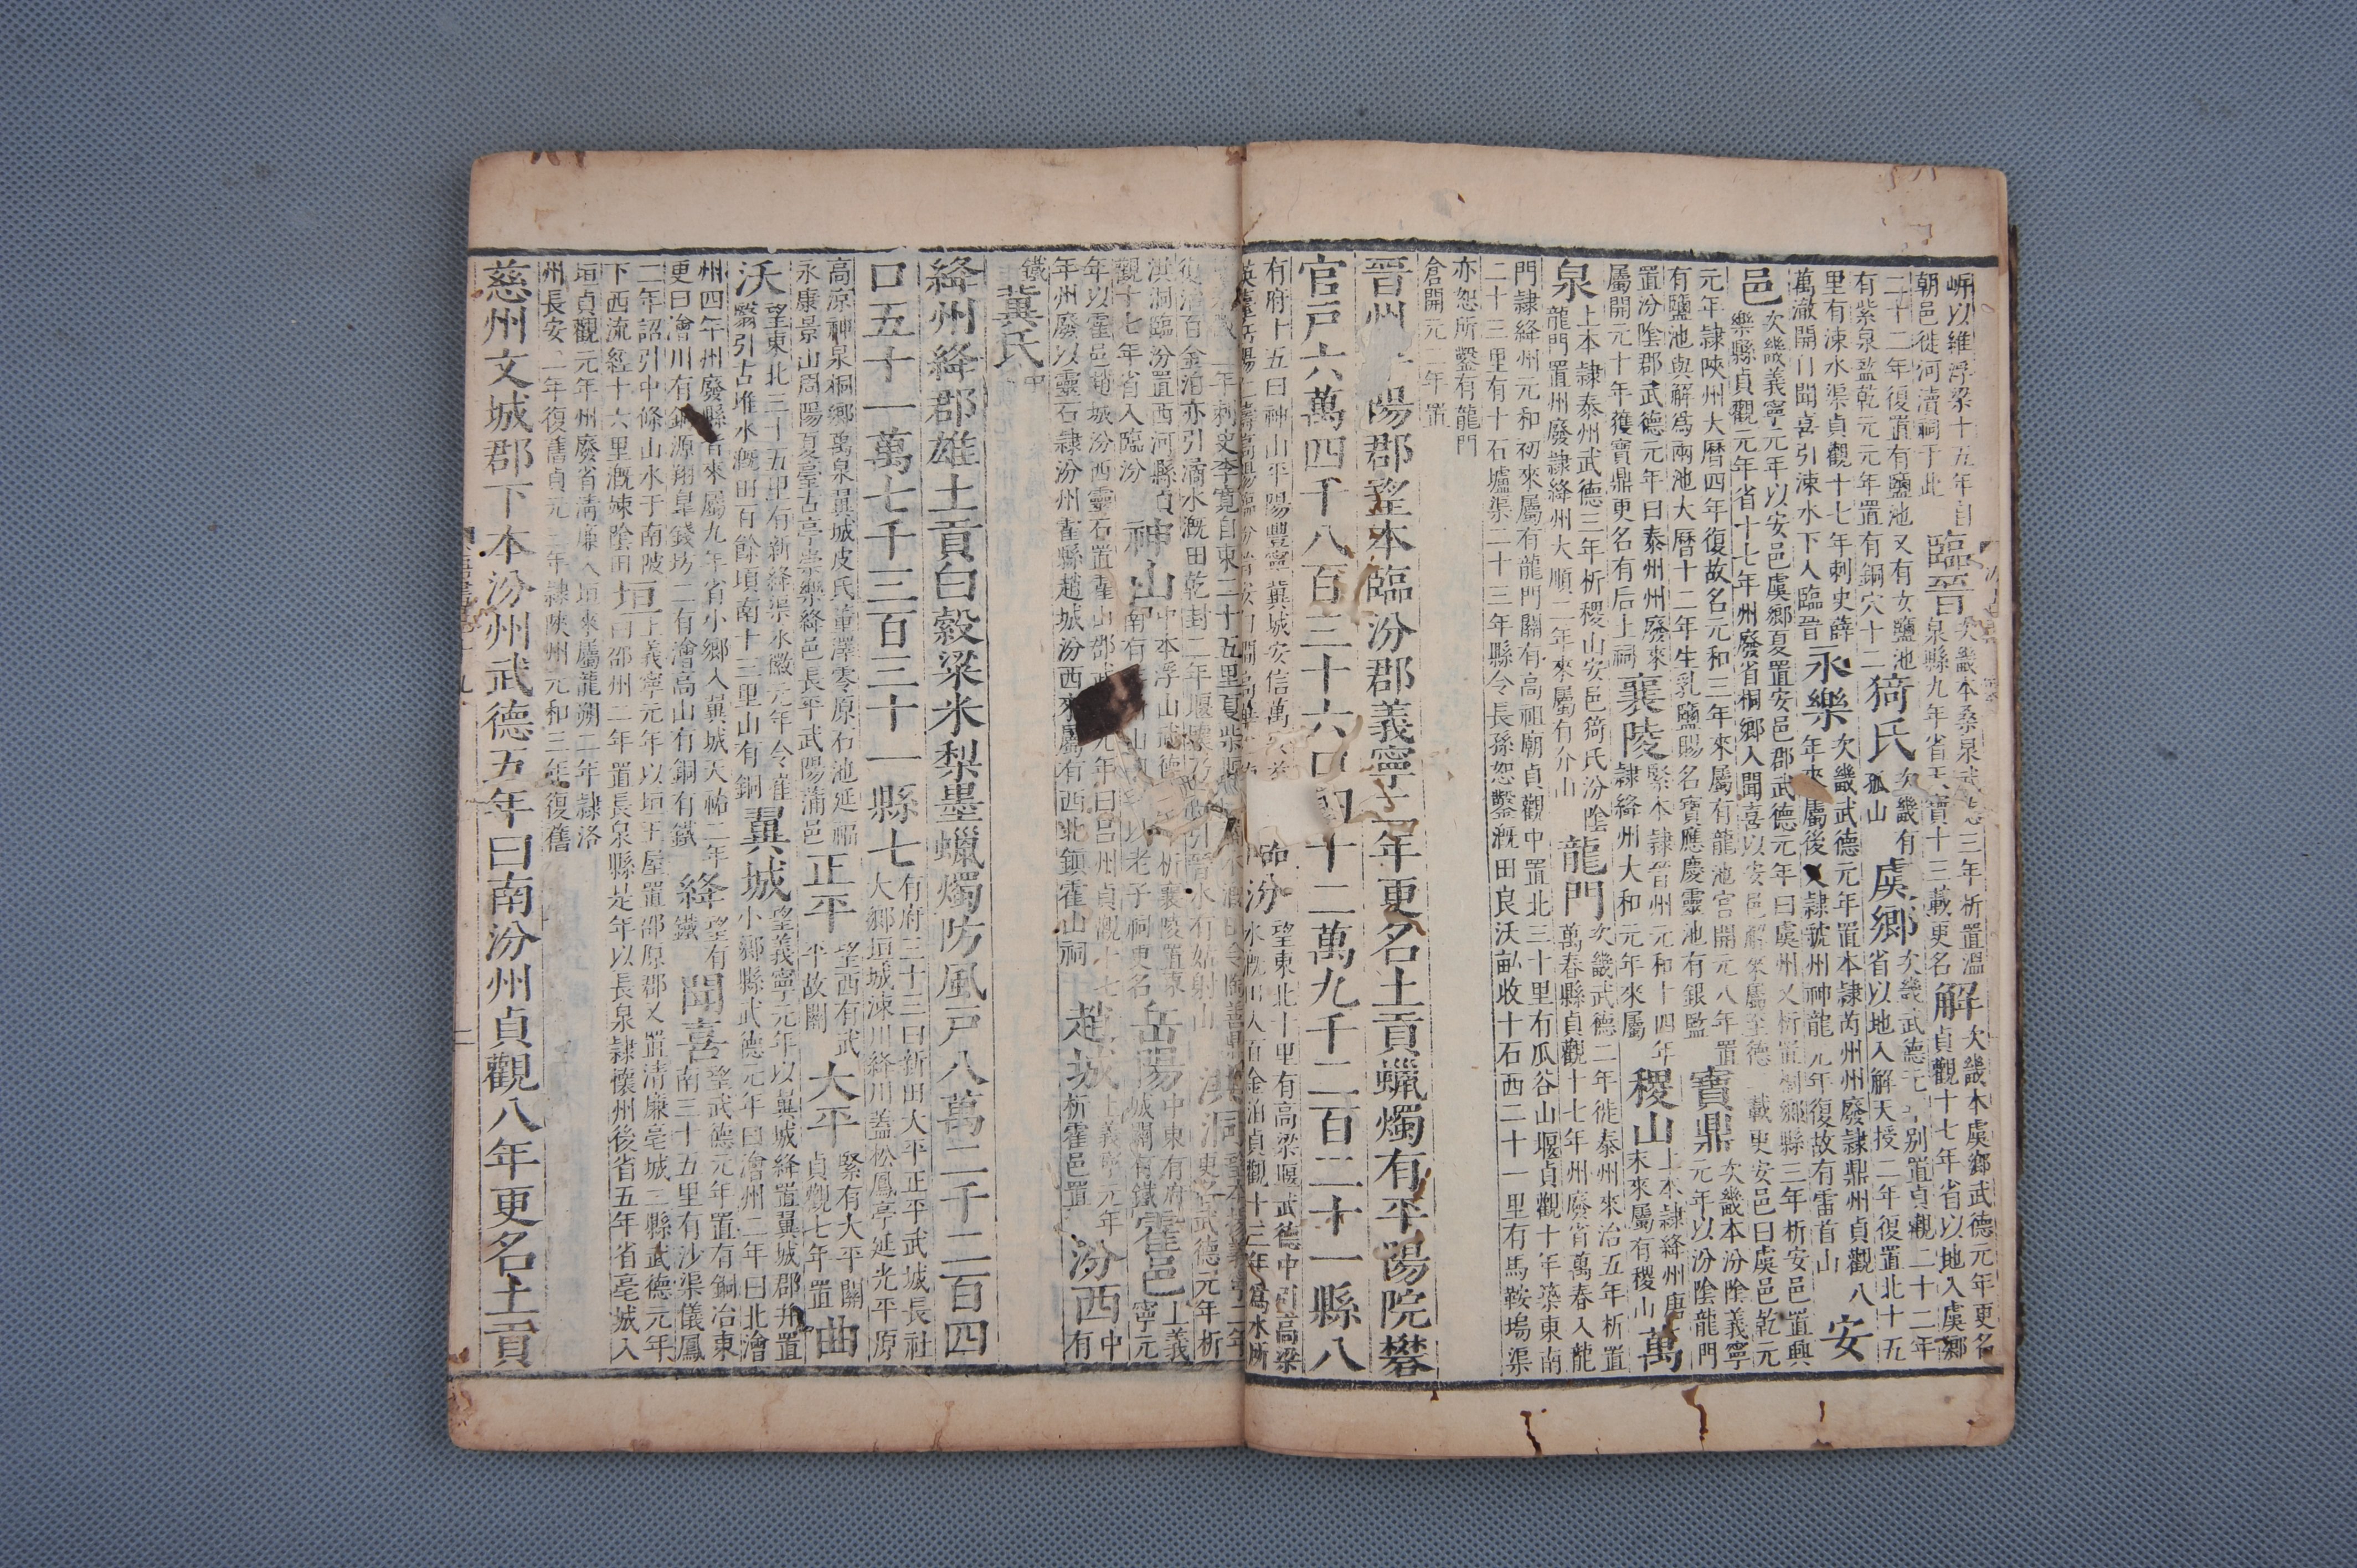 岍以維浮梁十五年自朝邑徙河瀆祠于此臨晉次畿本桑泉武德三年析置溫泉縣九年省天寶十三載更名解次畿本虞鄉武德元年更名貞觀十七年省以地入虞鄉
二十二年復置有鹽池又有女鹽池有紫泉監乾元元年置有銅穴十二猗氏次畿有孤山虞鄉次畿武德元年別置貞觀二十二年省以地入解天授二年復置北十五
里有涑水渠貞觀十七年刺史薛萬澈開自聞喜引涑水下入臨晉永樂次畿武德元年置本隸芮州州廢隸鼎州貞觀八年來屬後又隸虢州神龍元年復故有雷首山安
邑次畿義寧元年以安邑虞鄉夏置安邑郡武德元年曰虞州又析置桐鄉縣三年析安邑置興樂縣貞觀元年省十七年州廢省桐鄉入聞喜以安邑解來屬至德二載更安邑曰虞邑乾元
元年隸陝州大曆四年復故名元和三年來屬有龍池宮開元八年置有鹽池與解爲兩池大曆十二年生乳鹽賜名寶應慶靈池有銀監寶鼎次畿本汾陰義寧元年以汾陰龍門
置汾陰郡武德元年曰泰州州廢來屬開元十年獲寶鼎更名有后土祠襄陵緊本隸晉州元和十四年隸絳州大和元年來屬稷山上本隸絳州唐末來屬有稷山萬
泉上本隸泰州武德三年析稷山安邑猗氏汾陰龍門置州廢隸絳州大順二年來屬有介山龍門次畿武德二年徙泰州來治五年析置萬春縣貞觀十七年州廢省萬春入龍
門隸絳州元和初來屬有龍門關有高祖廟貞觀中置北三十里有瓜谷山堰貞觀十年築東南二十三里有十石壚渠二十三年縣令長孫恕鑿溉田良沃畝收十石西二十一里有馬鞍塢渠
亦恕所鑿有龍門倉開元二年置
晉州陽郡望本臨汾郡義寧二年更名土貢蠟燭有平陽院礬
官戶六萬四千八百三十六口四十二萬九千二百二十一縣八
有府十五曰神山平陽豐寧冀城安信萬臨汾望東北十里有高梁堰武德中引高梁水溉田入百金泊貞觀十三年爲水所
年刺史李寬自東二十五里夏柴堰復治百金泊亦引滈水溉田乾封二年堰洪洞望武德元年析
洪洞臨汾置西河縣貞觀十七年省入臨汾神山中本浮山武德析襄陵置東南有山以老子祠更名岳陽中東有府城關有鐵霍邑上義寧元
年以霍邑趙城汾西靈石置霍山郡武德元年曰呂州貞觀十七年州廢以靈石隸汾州霍縣趙城汾西來屬有西北鎮霍山祠趙城上義寧元年析霍邑置汾西中有
鐵冀氏中
絳州絳郡雄土貢白縠粱米梨墨蠟燭防風戶八萬二千二百四
口五十一萬七千三百三十一縣七有府三十三曰新田大平正平武城長社大鄉垣城涑川絳川蓋松鳳亭延光平原
高涼神泉桐鄉萬泉翼城皮氏董澤零原石池延福永康景山周陽夏臺古亭崇樂絳邑長平武陽蒲邑正平望西有武平故關大平緊有大平關貞觀七年置曲
沃望東北三十五里有新絳渠永徽元年令崔翳引古堆水溉田百餘頃南十三里山有銅翼城望義寧元年以翼城絳置翼城郡并置小鄉縣武德元年曰澮州二年曰北澮
州四年州廢縣皆來屬九年省小鄉入翼城天祐二年更曰澮川有銅源翔臯錢坊二有澮高山有銅有鐵絳望有鐵聞喜望武德元年置有銅冶東南三十五里有沙渠儀鳳
二年詔引中條山水于南陂下西流經十六里溉涑陰田垣上義寧元年以垣王屋置邵原郡又置清廉亳城三縣武德元年曰邵州二年置長泉縣是年以長泉隸懷州後省五年省亳城入
垣貞觀元年州廢省清廉入垣來屬龍朔二年隸洛州長安二年復舊貞元三年隸陝州元和三年復舊
慈州文城郡下本汾州武德五年曰南汾州貞觀八年更名土貢